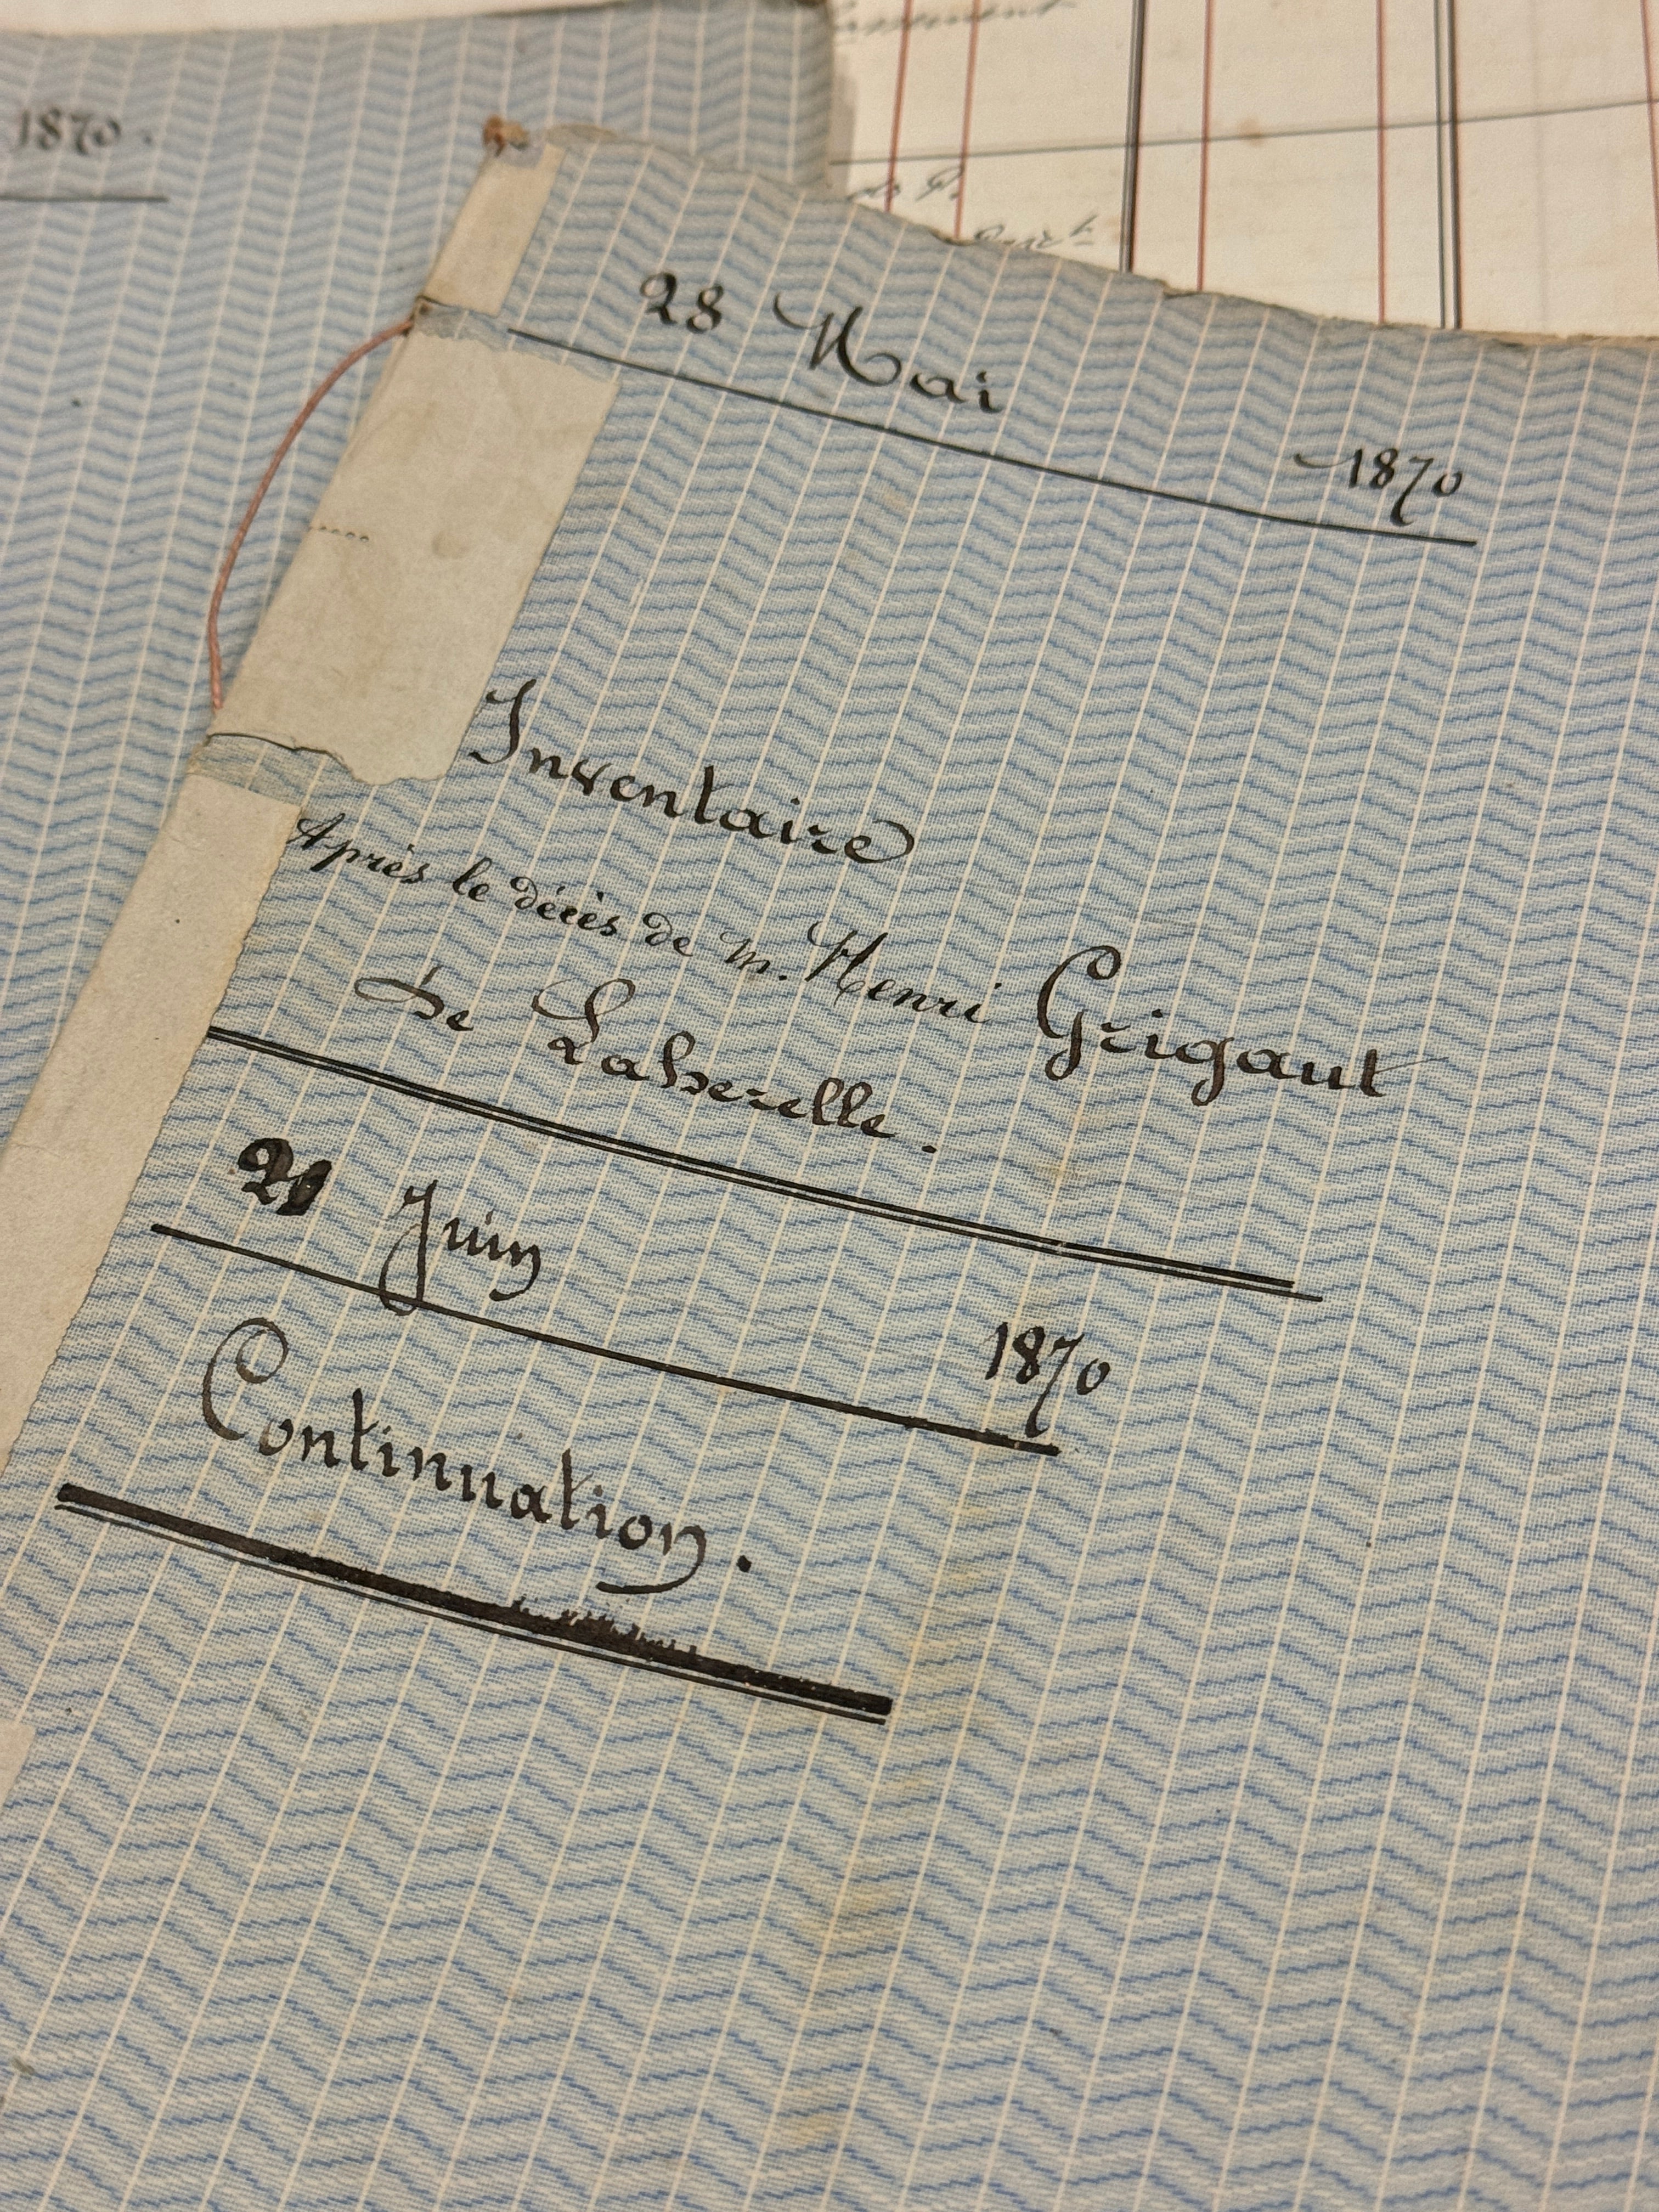 1870.
28 Mai
1870
Inventaire
Après le décès de m. Henri Grigaut
De Laberelle.
Juin
1870
Continuation.